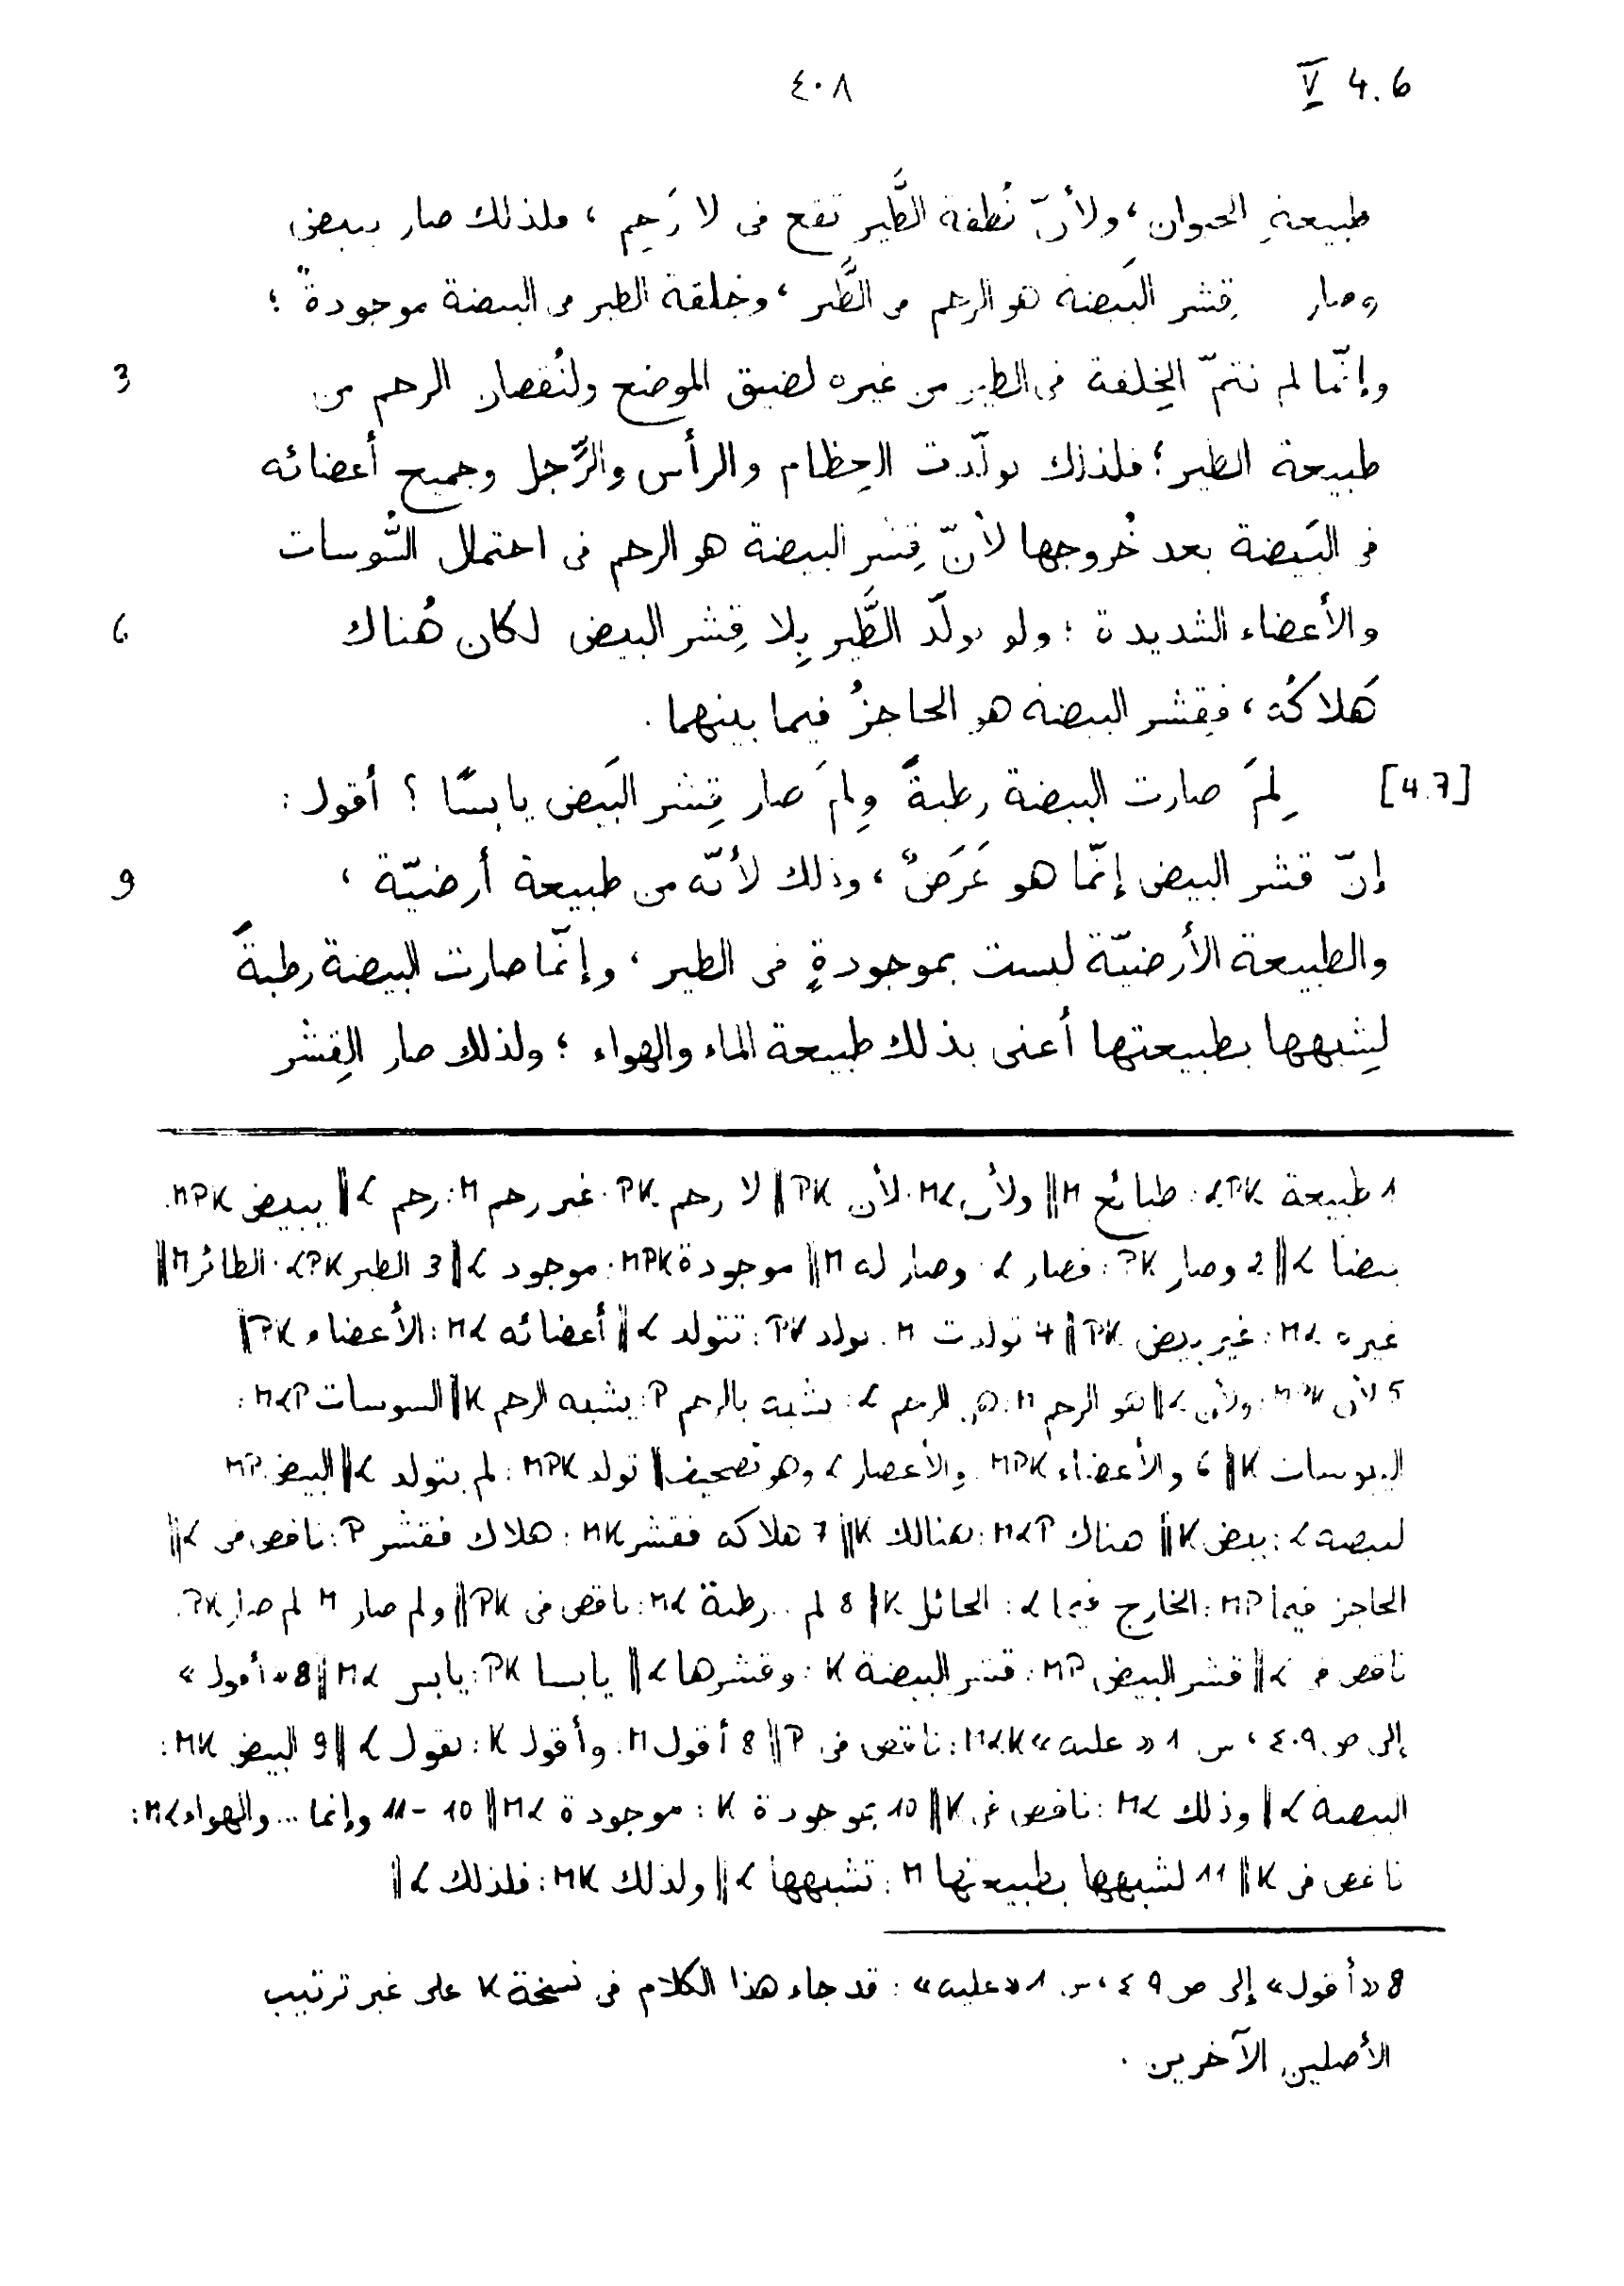 V 4.6 ٤٠٨
طبيعةِ الحيوان، ولأنّ نُطفة الطَّير تقع فى لا رَحِم، فلذلك صار ببيض
وصار قِشر البَيضة هو الرحم من الطَّير، وخلقة الطير فى البيضة موجودةً؛
3 وإنّما لم تتمّ الخِلقة فى الطير من غيره لضيق الموضع ولنُقصان الرحم من
طبيعة الطير؛ فلذلك تولّدت العِظام والرأس والرِّجل وجميع أعضائه
فى البَيضة بعد خُروجها لأنّ قِشر البيضة هو الرحم فى احتمال السُّوسات
6 والأعضاء الشديدة؛ ولو تولّد الطَّير بِلا قِشر البيض لكان هُناك
هَلاكُه، فقِشر البيضة هو الحاجزُ فيما بينهما.
[4.7] لِمَ صارت البيضة رطبةً ولِمَ صار قِشر البَيض يابسًا؟ أقول:
9 إنّ قشر البيض إنّما هو عَرَضٌ، وذلك لأنّه من طبيعة أرضيّة،
والطبيعة الأرضيّة ليست بموجودةٍ فى الطير، وإنّما صارت البيضة رطبةً
لِشبهها بطبيعتها أعنى بذلك طبيعة الماء والهواء؛ ولذلك صار القِشر
1 طبيعة LPK: طبائع M || ولأن ML: لأن PK || لا رحم PK: غير رحم M: رحم L || ببيض MPK:
بيضا L || 2 وصار PK: فصار L: وصار له M || موجودة MPK: موجود L || 3 الطير LPK: الطائر M ||
غيره ML: غير بيض PK || 4 تولدت M: تولد PK: تتولد L || أعضائه ML: الأعضاء PK ||
5 لأن MPK: ولأن L || هو الرحم M: هى الرحم L: يشبه بالرحم P: يشبه الرحم K || السوسات MLP:
اليبوسات K || 6 والأعضاء MPK: والأعصار L وهو تصحيف || تولد MPK: لم يتولد L || البيض MP:
لبيضة L: بيض K || هناك MLP: هنالك K || 7 هلاكه فقشر MK: هلاك فقشر P: ناقص فى L ||
الحاجز فيما MP: الخارج فيما L: الحائل K || 8 لم .. رطبة ML: ناقص فى PK || ولم صار M: لم صار PK:
ناقص فى L || قشر البيض MP: قشر البيضة K: وقشرها L || يابسا PK: يابس ML || 8 «أقول»
إلى ص ٤٠٩، س 1 «عليه» MLK: ناقص فى P || 8 أقول M: وأقول K: نقول L || 9 البيض MK:
البيضة L || وذلك ML: ناقص فى K || 10 بموجودة K: موجودة ML || 10 – 11 وإنما ... والهواء ML:
ناقص فى K || 11 لشبهها بطبيعتها M: تشبهها L || ولذلك MK: فلذلك L ||
8 «أقول» إلى ص ٤٠٩، س 1 «عليه»: قد جاء هذا الكلام فى نسخة K على غير ترتيب
الأصلين الآخرين.